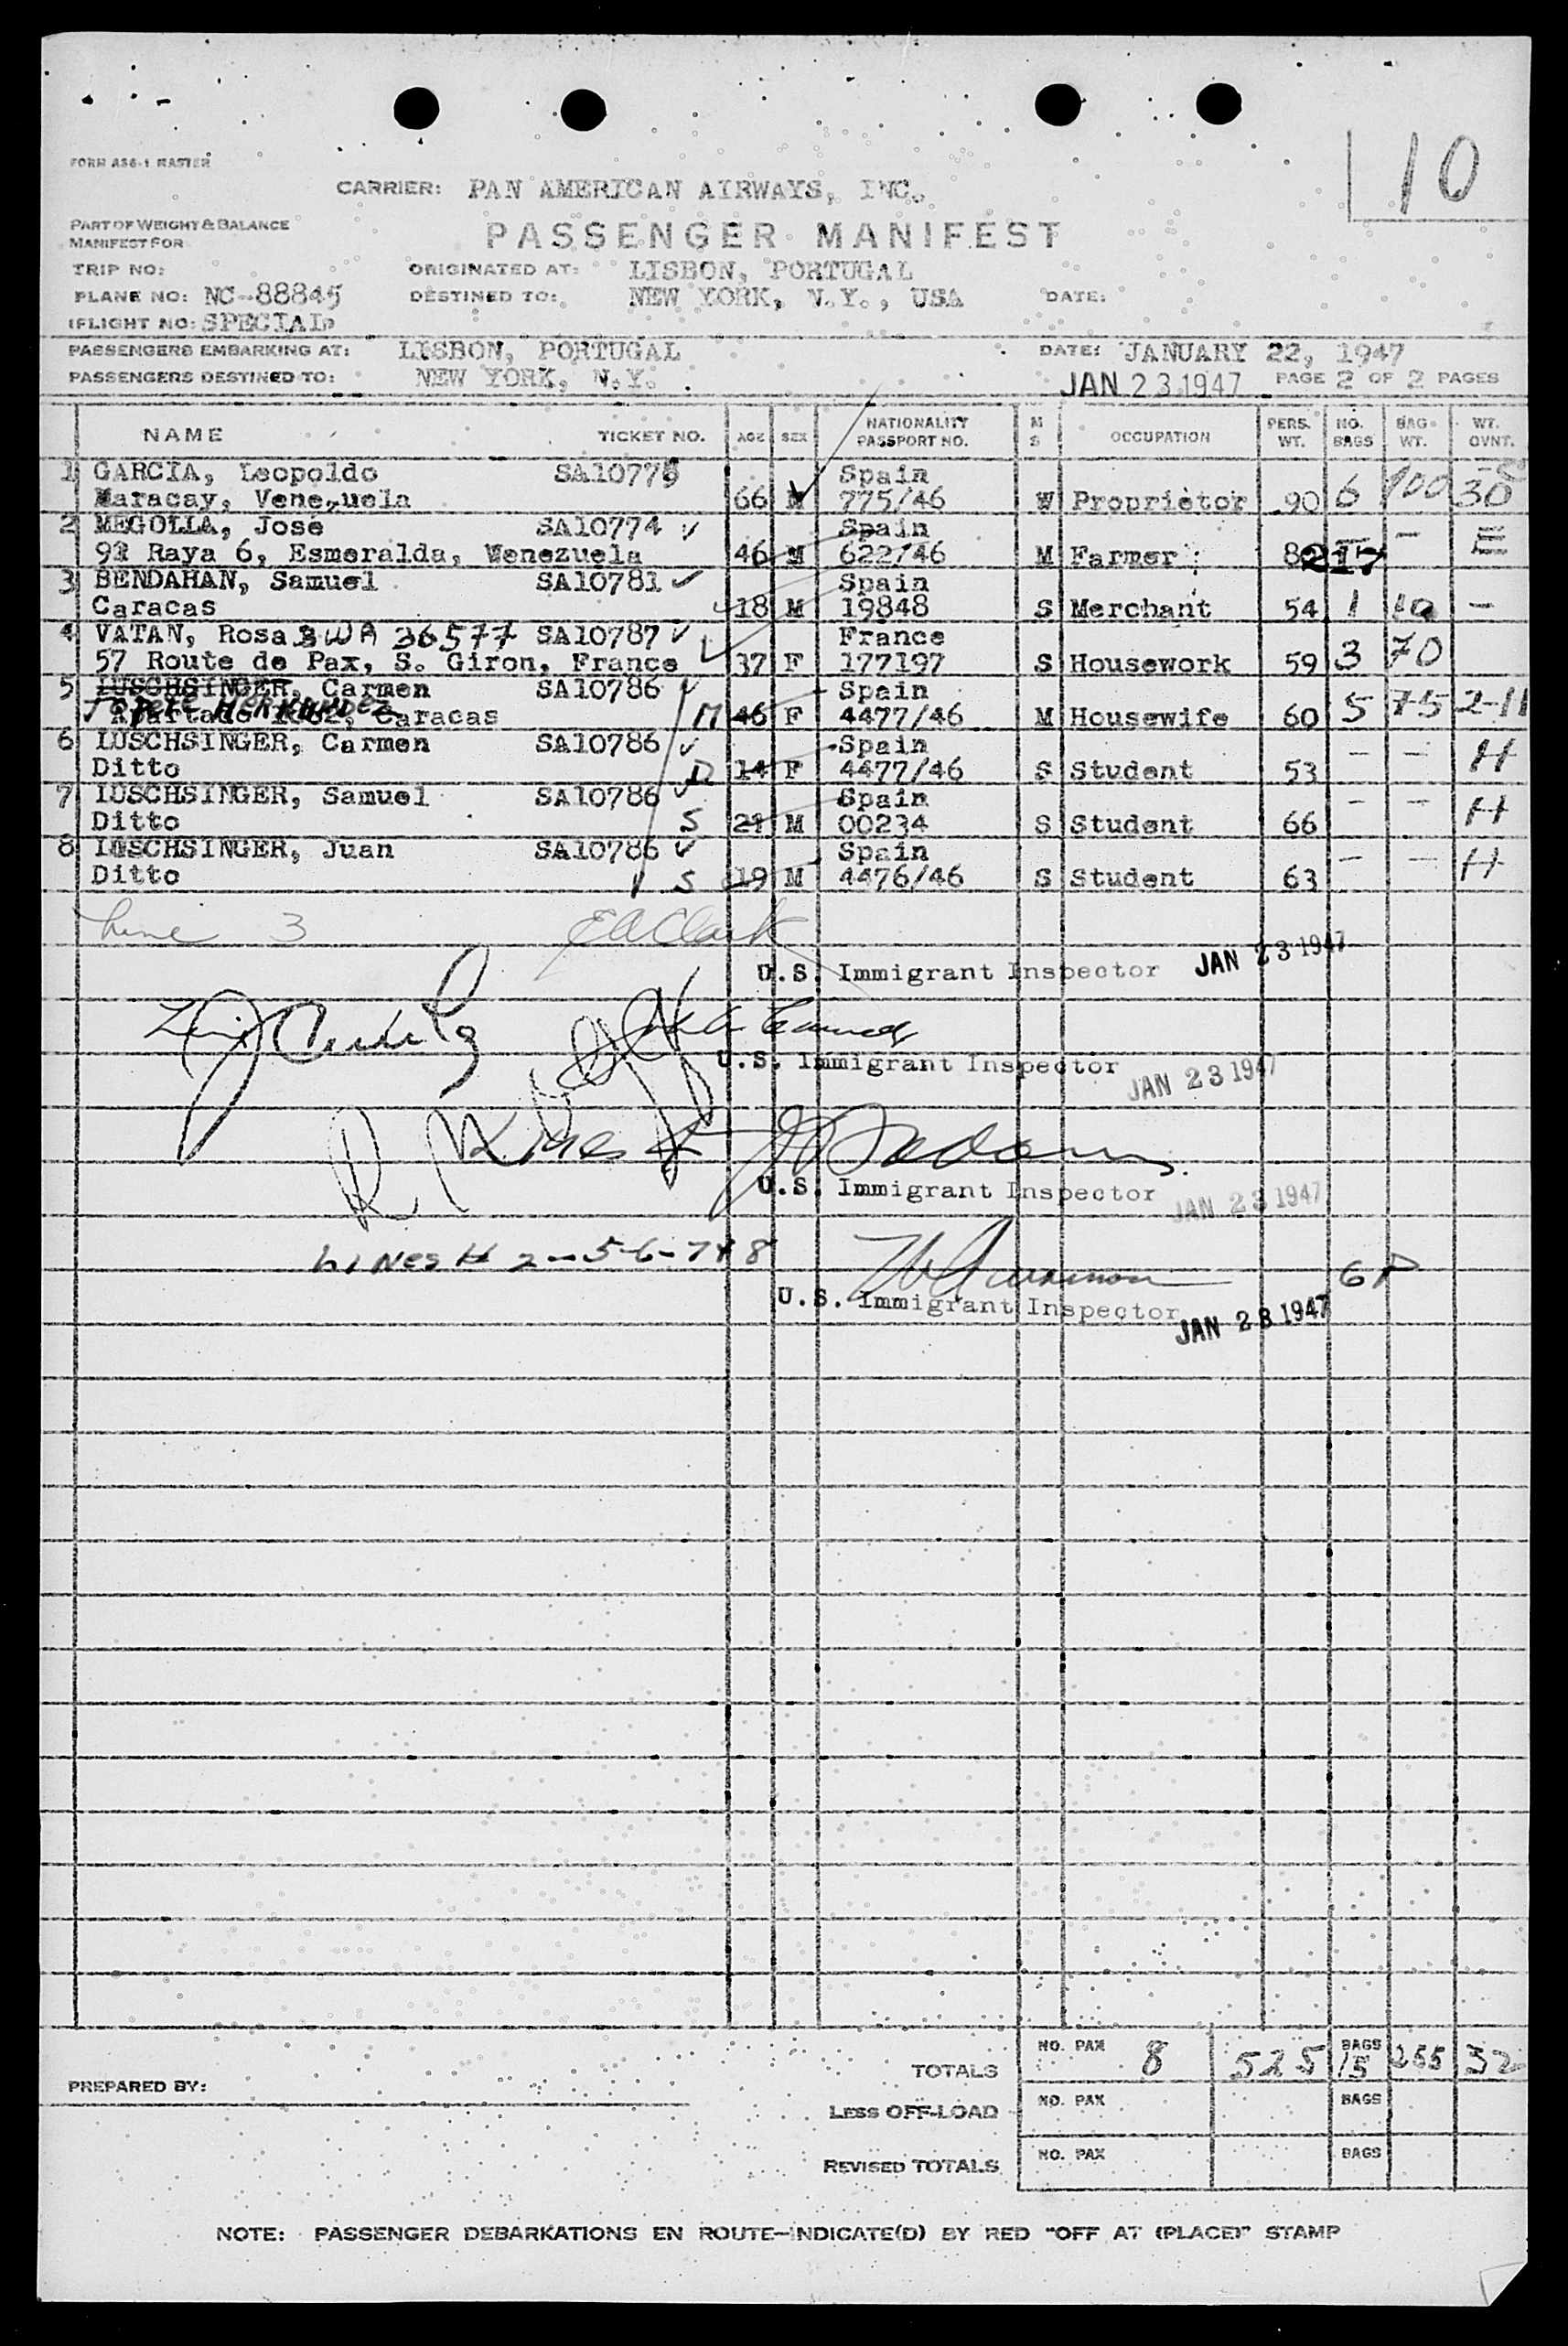 FORM AS6-1 MASTER
10
CARRIER: PAN AMERICAN AIRWAYS, INC.
PART OF WEIGHT & BALANCE
MANIFEST FOR
PASSENGER MANIFEST
TRIP NO:
ORIGINATED AT: LISBON, PORTUGAL
PLANE NO: NC-88845
DESTINED TO: NEW YORK, N.Y., USA
DATE:
FLIGHT NO: SPECIAL
PASSENGERS EMBARKING AT: LISBON, PORTUGAL
DATE: JANUARY 22, 1947
PASSENGERS DESTINED TO: NEW YORK, N.Y.
JAN 23 1947 PAGE 2 OF 2 PAGES
NAME TICKET NO. AGE SEX NATIONALITY PASSPORT NO. M S OCCUPATION PERS. WT. NO. BAGS BAG WT. WT. OVNT.
1 GARCIA, Leopoldo SA10775 Spain
Maracay, Venezuela 66 M 775/46 W Proprietor 90 6 100 30
2 MEGOLLA, Jose SA10774 Spain
92 Raya 6, Esmeralda, Venezuela 46 M 622/46 M Farmer 217
3 BENDAHAN, Samuel SA10781 Spain
Caracas 18 M 19848 S Merchant 54 1 10 -
4 VATAN, Rosa BWA 36577 SA10787 France
57 Route de Pax, S. Giron, France 37 F 177197 S Housework 59 3 70
5 LUSCHSINGER, Carmen SA10786 Spain
Hernandez
Apartado Caracas M 46 F 4477/46 M Housewife 60 5 75 2-H
6 LUSCHSINGER, Carmen SA10786 Spain
Ditto D 14 F 4477/46 S Student 53 - - H
7 LUSCHSINGER, Samuel SA10786 Spain
Ditto S 21 M 00234 S Student 66 - - H
8 LUSCHSINGER, Juan SA10786 Spain
Ditto S 19 M 4476/46 S Student 63 - - H
Line 3 E A Clark
U.S. Immigrant Inspector JAN 23 1947
U.S. Immigrant Inspector JAN 23 1947
U.S. Immigrant Inspector JAN 23 1947
Lines # 2-5-6-7+8
6P
U.S. Immigrant Inspector JAN 23 1947
TOTALS NO. PAX 8 525 BAGS 15 255 32
PREPARED BY:
LESS OFF-LOAD NO. PAX BAGS
REVISED TOTALS NO. PAX BAGS
NOTE: PASSENGER DEBARKATIONS EN ROUTE-INDICATE(D) BY RED "OFF AT (PLACE)" STAMP